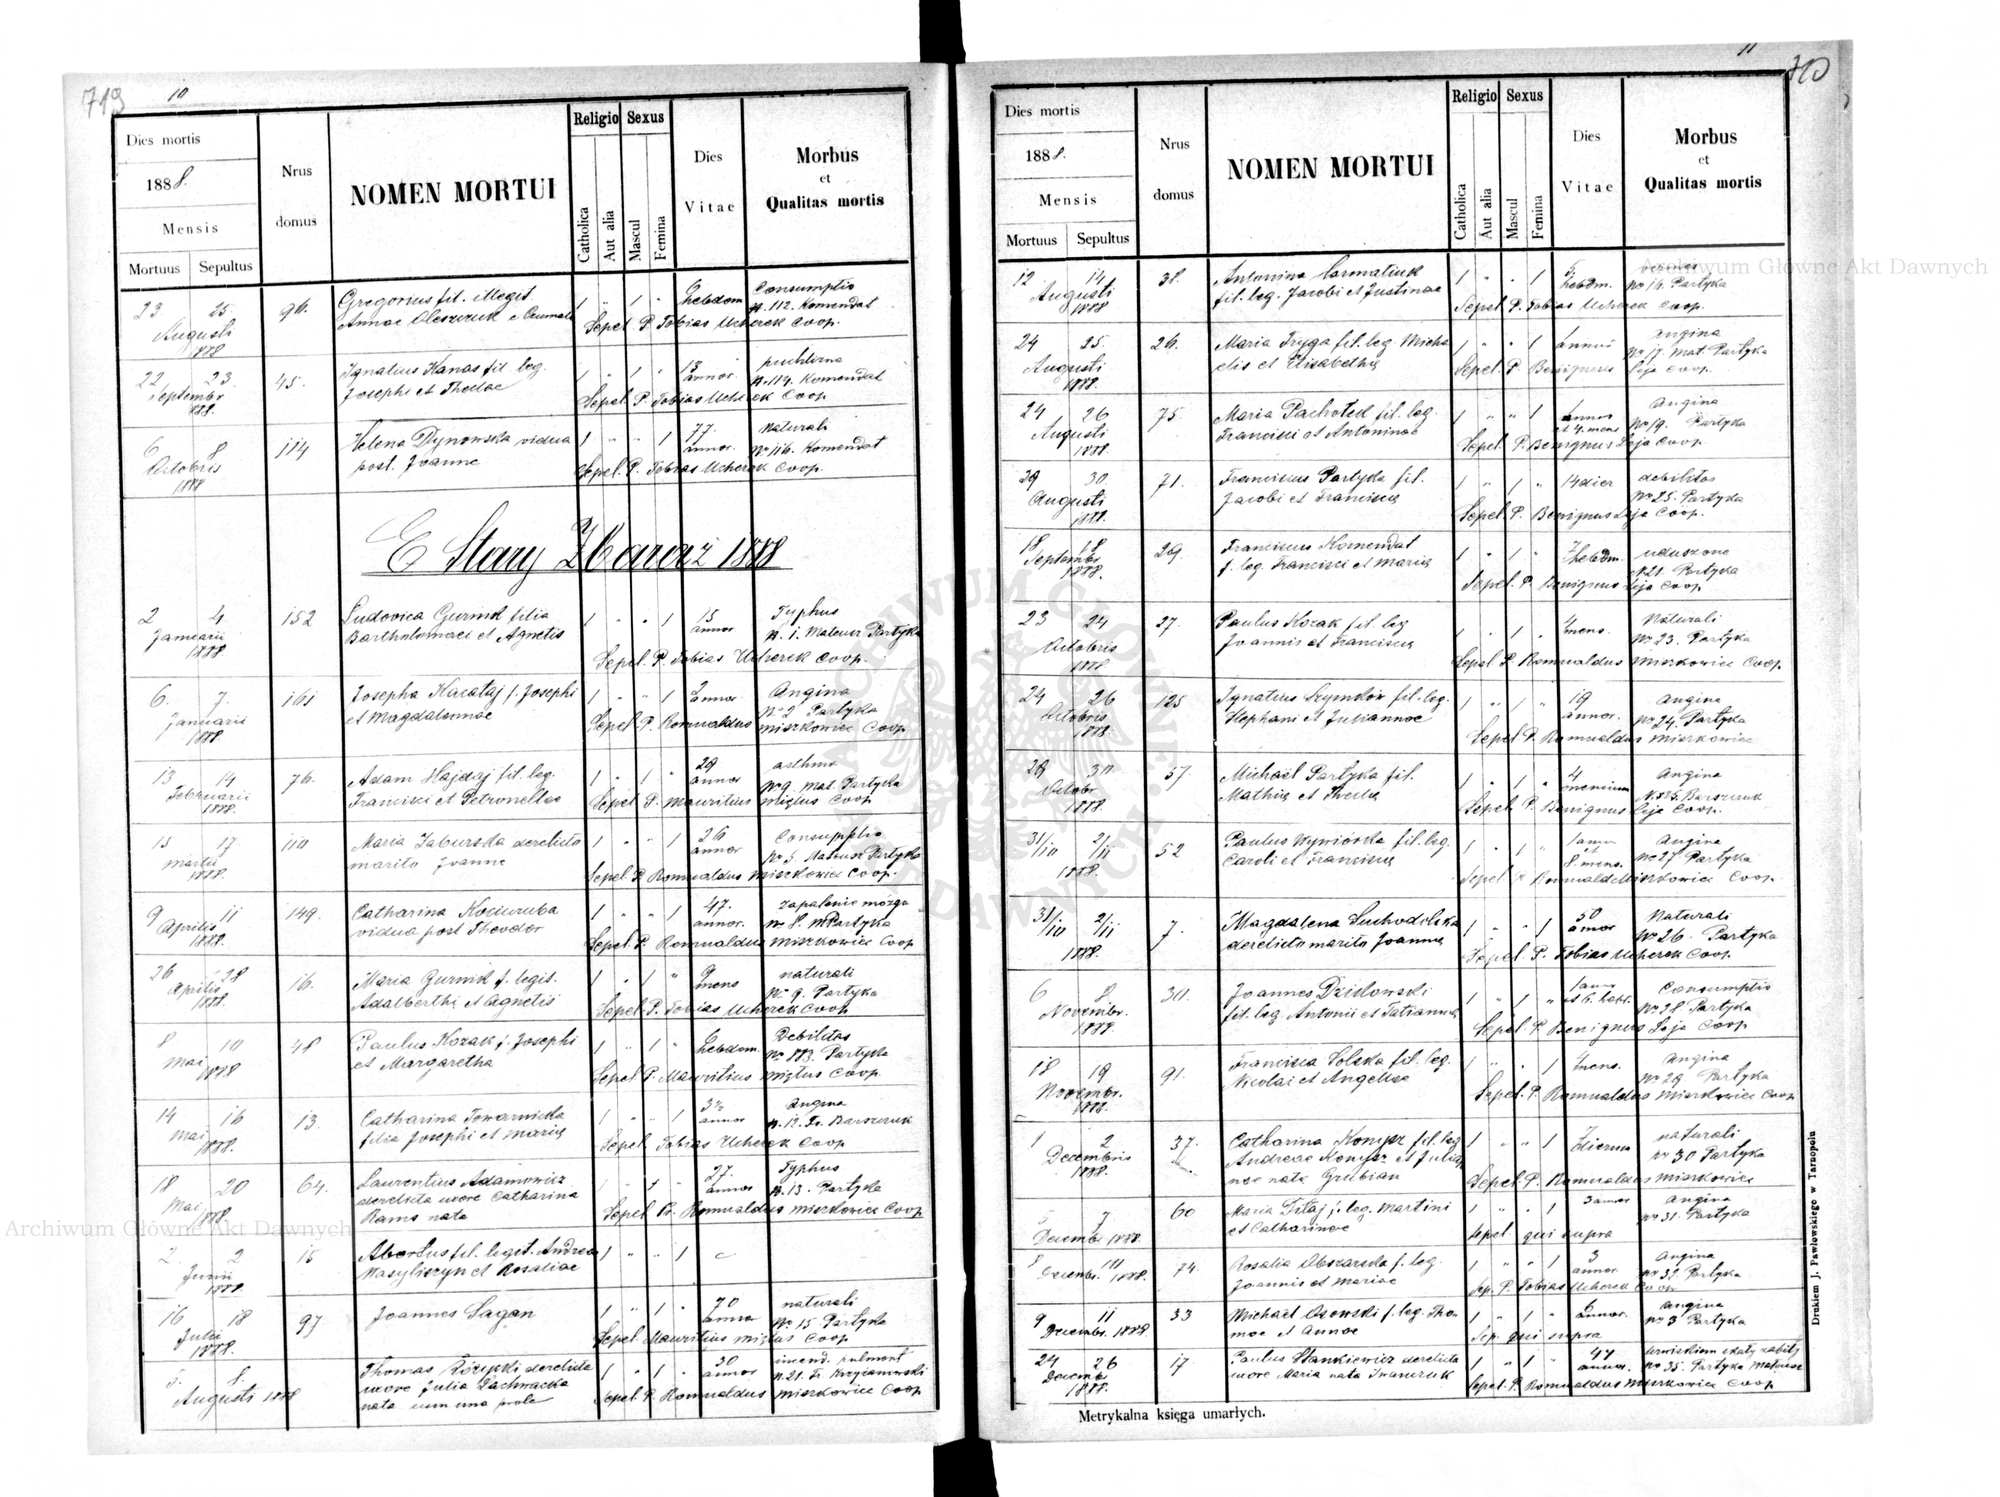 713
10
Dies mortis
1888.
Mensis
Mortuus Sepultus
Nrus
domus
NOMEN MORTUI
Religio Sexus
Catholica
Aut alia
Mascul
Femina
Dies
Vitae
Morbus
et
Qualitas mortis
23 25
Augusti
1888
96.
Gregorius fil. illegit.
Annae Oleszczuk
1 " 1 "
hebdom
Consumptio
N. 112. Komendat
Sepel P. Tobias Ucherek Coop.
22 23
Septembr
1888.
45.
Ignatius Kanas fil leg.
Josephi et Theclae
1 " 1 "
13
annor.
puchlina
N. 114. Komendat
Sepel. P. Tobias Ucherek Coop
6 8
Octobris
1888
114
Helena Dynowska vidua
post. Joanne
1 " " 1
77.
annor.
Naturali
No 116. Komendat
Sepel. P. Tobias Ucherek Coop.
E Stary Zbaraż 1888
2 4
Januarii
1888
152
Ludovica Gurnik filia
Bartholomaei et Agnetis
1 " " 1
15
annor
Typhus
N. 1. Mateusz Partyka
Sepel. P. Tobias Ucherek Coop.
6. 7.
Januarii
1888
161
Josepha Karataj f. Josephi
et Magdalennae
1 " " 1
2
annor
Angina
No 2 Partyka
Sepel. P. Romualdus Miszkowicz Coop.
13 14
Februarii
1888.
76.
Adam Hajdaj fil. leg.
Francisci et Petronellae
1 " 1 "
29
annor
asthma
No 9. Mat. Partyka
Sepel P. Mauritius Miętus Coop
15 17.
Martii
1888.
110
Maria Zaburska derelicto
marito Joanne
1 " " 1
26
annor
Consumptio
No 5 Mateusz Partyka
Sepel P. Romualdus Miszkowicz Coop.
9 11
Aprilis
1888.
149.
Catharina Kociuruba
vidua post Theodor
1 " " 1
47.
annor.
zapalenie mózgu
No 8. M Partyka
Sepel. P. Romualdus Miszkowicz Coop
26 28
Aprilis
1888.
16.
Maria Gurnik f. legit.
Adalberthi et Agnetis
1 " 1 "
9
mens
naturali
No 9. Partyka
Sepel. P. Tobias Ucherek Coop
8 10
Mai
1888
48
Paulus Kozak f. Josephi
et Margaretha
1 " 1 "
hebdom.
Debilitas
Partyka
Sepel P. Mauritius Miętus Coop.
14 16
Mai
1888.
13.
Catharina Towarnicka
filia Josephi et Mariae
1 " " 1
3½
annor
Angina
N. 12. Fr. Barszczuk
Sepel. Tobias Ucherek Coop
18 20
Mai
1888
64.
Laurentius Adamowicz
derelicta uxore Catharina
Rams nata
27.
annor
Typhus
N. 13. Partyka
Sepel Pr. Romualdus Miszkowicz Coop
2 2
Junii
1888.
15
Abortus fil. legit. Andreae
Wasyliszyn et Rosaliae
1 " " 1
16 18
Julii
1888.
97.
Joannes Sagan
1 " 1 "
70
annor
naturali
No 15 Partyka
Sepel. Mauritius Miętus Coop
5. 8.
Augusti 1888
Thomas Różycki derelicta
uxore Julia Lachwacka
nata cum una prole
1 " 1 "
30
annor
pulmont
N. 21. Fr. Krzyżanowski
Sepel P. Romualdus Miszkowicz Coop
11
Dies mortis
1888.
Mensis
Mortuus Sepultus
Nrus
domus
NOMEN MORTUI
Religio Sexus
Catholica
Aut alia
Mascul
Femina
Dies
Vitae
Morbus
et
Qualitas mortis
12 14
Augusti
1888
38.
Antonina
fil. leg. Jacobi et Justinae
1 " " 1
hebdm.
No 16. Partyka
Sepel P. Tobias Ucherek Coop.
24 25
Augusti
1888.
26.
Maria Fryga fil. leg Micha
elis et Elisabethae
1 " " 1
annus
Angina
No 17. Mat. Partyka
Sepel. P. Benignus Leja Coop.
24 26
Augusti
1888.
75.
Maria Pachołek fil. leg.
Francisci et Antoninae
1 " " 1
1
annus
et 4. mens
Angina
No 19. Partyka
Sepel. P. Benignus Leja Coop.
29 30
Augusti
1888.
71.
Franciscus Partyka fil.
Jacobi et Franciscae
1 " 1 "
14 dier
debilitas
No 25. Partyka
Sepel. P. Benignus Leja Coop.
18 18
Septembr.
1888.
29.
Franciscus Komendat
f. leg. Francisci et Mariae
1 " 1 "
7 hebdm.
uduszone
N 21. Partyka
Sepel. P. Benignus Leja Coop
23 24
Octobris
1888
27.
Paulus Kozak fil. leg
Joannis et Franciscae
1 " 1 "
mens.
Naturali
No 23. Partyka
Sepel P. Romualdus Miszkowicz Coop.
24 26
Octobris
1888.
125
Ignatius Szymków fil. leg.
Stephani et Juliannae
1 " 1 "
19
annor.
Angina
No 24. Partyka
Sepel P. Romualdus Miszkowicz
28 30
Octobr
1888.
57.
Michael Partyka fil.
Mathiae et Theclae
1 " 1 "
4
mensium
Angina
No 25. Barszczuk
Sepel P. Benignus Leja Coop.
31/10 2/11
1888.
52
Paulus Wywiórka fil. leg.
Caroli et Franciscae
1 " 1 "
1 ann
et
8. mens.
Angina
No 27 Partyka
Sepel P Romualdus Miszkowicz Coop.
31/10 2/11
1888.
7.
Magdalena Suchodolska
derelicto marito Joanne
1 " " 1
50
annor
Naturali
No 26. Partyka
Sepel P. Tobias Ucherek Coop.
6 8
Novembr.
1888.
30.
Joannes Dzikowski
fil. leg Antonii et Tatiannae
1 " 1 "
1 ann
et 6. hebd.
Consumptio
No 28 Partyka
Sepel P. Benignus Leja Coop
18 19
Novembr.
1888.
91.
Francisca Solska fil. leg.
Nicolai et Angelae
1 " " 1
mens.
Angina
No 29 Partyka
Sepel. P. Romualdus Miszkowicz Coop
1 2
Decembris
1888.
37.
Catharina fil. leg
Andreae et Julian
nae nata Grubian
1 " " 1
dierum
naturali
No 30 Partyka
Sepel P. Romualdus Miszkowicz
5 7
Decembr 1888.
60
Maria Sitaj f. leg. Martini
et Catharinae
1 " " 1
3 annor
Angina
No 31. Partyka
Sepel qui supra
8 10
Decembr. 1888.
74.
Rosalia Obszarska f. leg.
Joannis et Mariae
1 " " 1
3
annor.
Angina
No 32. Partyka
Sep. P. Tobias Ucherek Coop
9 11
Decembr. 1888
33
Michael Osowski f. leg. Tho
mae et Annae
1 " 1 "
6
annor.
Angina
No 3 Partyka
Sep. qui supra
24 26
Decembr
1888.
17
Paulus Stankiewicz derelicta
uxore Maria nata
1 " 1 "
47
annor.
urwiskiem skały zabity
No 35. Partyka Mateusz
Sepel. P. Romualdus Miszkowicz Coop
Metrykalna księga umarłych.
Drukiem J. Pawłowskiego w Tarnopolu
Archiwum Główne Akt Dawnych
Archiwum Główne Akt Dawnych
ARCHIWUM GŁÓWNE AKT DAWNYCH